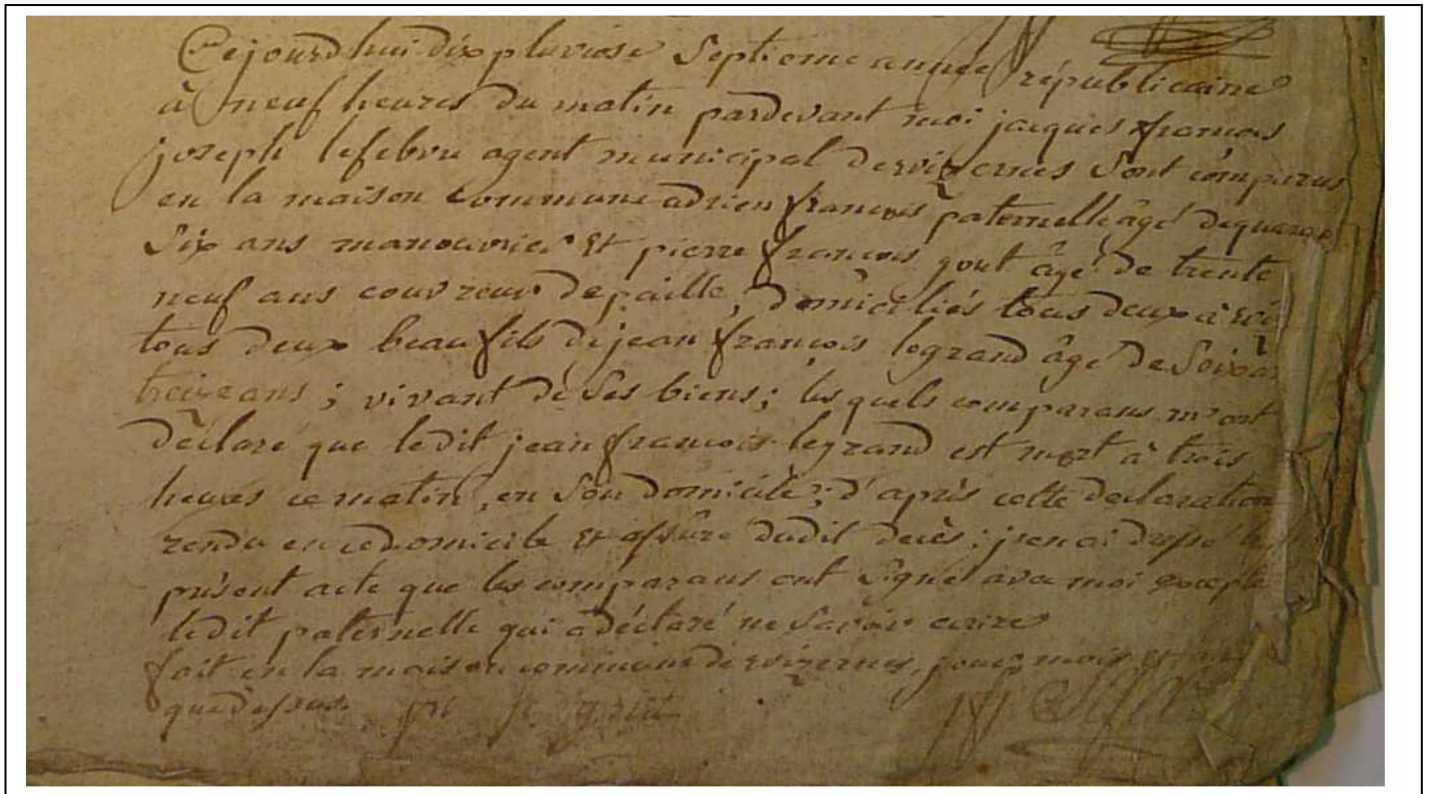 Cejourd'hui dix pluviose Septieme année républicaine
à neuf heures du matin pardevant moi jacques françois
joseph lefebvre agent municipal de wizernes Sont comparus
en la maison commune adrien françois paternelle âgé de quarante
Six ans manouvrier Et pierre françois gout âgé de trente
neuf ans couvreur de paille, domiciliés tous deux à wi
tous deux beau fils de jean françois legrand âgé de Soixan
treize ans ; vivant de Ses biens ; les quels comparans m'ont
déclaré que ledit jean françois legrand est mort à trois
heures ce matin, en Son domicile ; d'après cette declaration
rendu en ce domicile Et assûré dudit decès ; j'en ai dressé le
présent acte que les comparans ont Signé avec moi excepté
ledit paternelle qui a déclaré ne Savoir ecrire
fait en la maison commune de wizernes, jour, mois et an
que dessus. pr fr gout